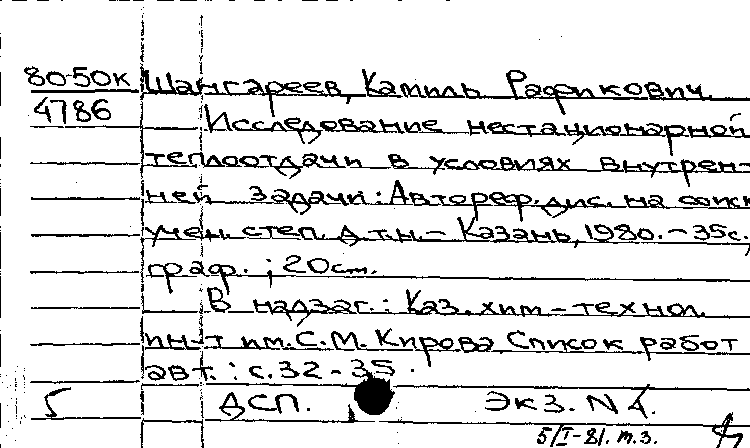 80-50к Шангареев, Камиль Рафикович.
4786
Исследование нестационарной
теплоотдачи в условиях внутрен-
ней задачи: Автореф. дис. на соиск
учен. степ. д.т.н. - Казань, 1980. - 35с.,
граф.; 20см.
В надзаг.: Каз. хим-технол.
ин-т им. С.М. Кирова Список работ
авт.: с. 32-35.
5 ДСП. экз. N 1.
5/I-81. т.з.